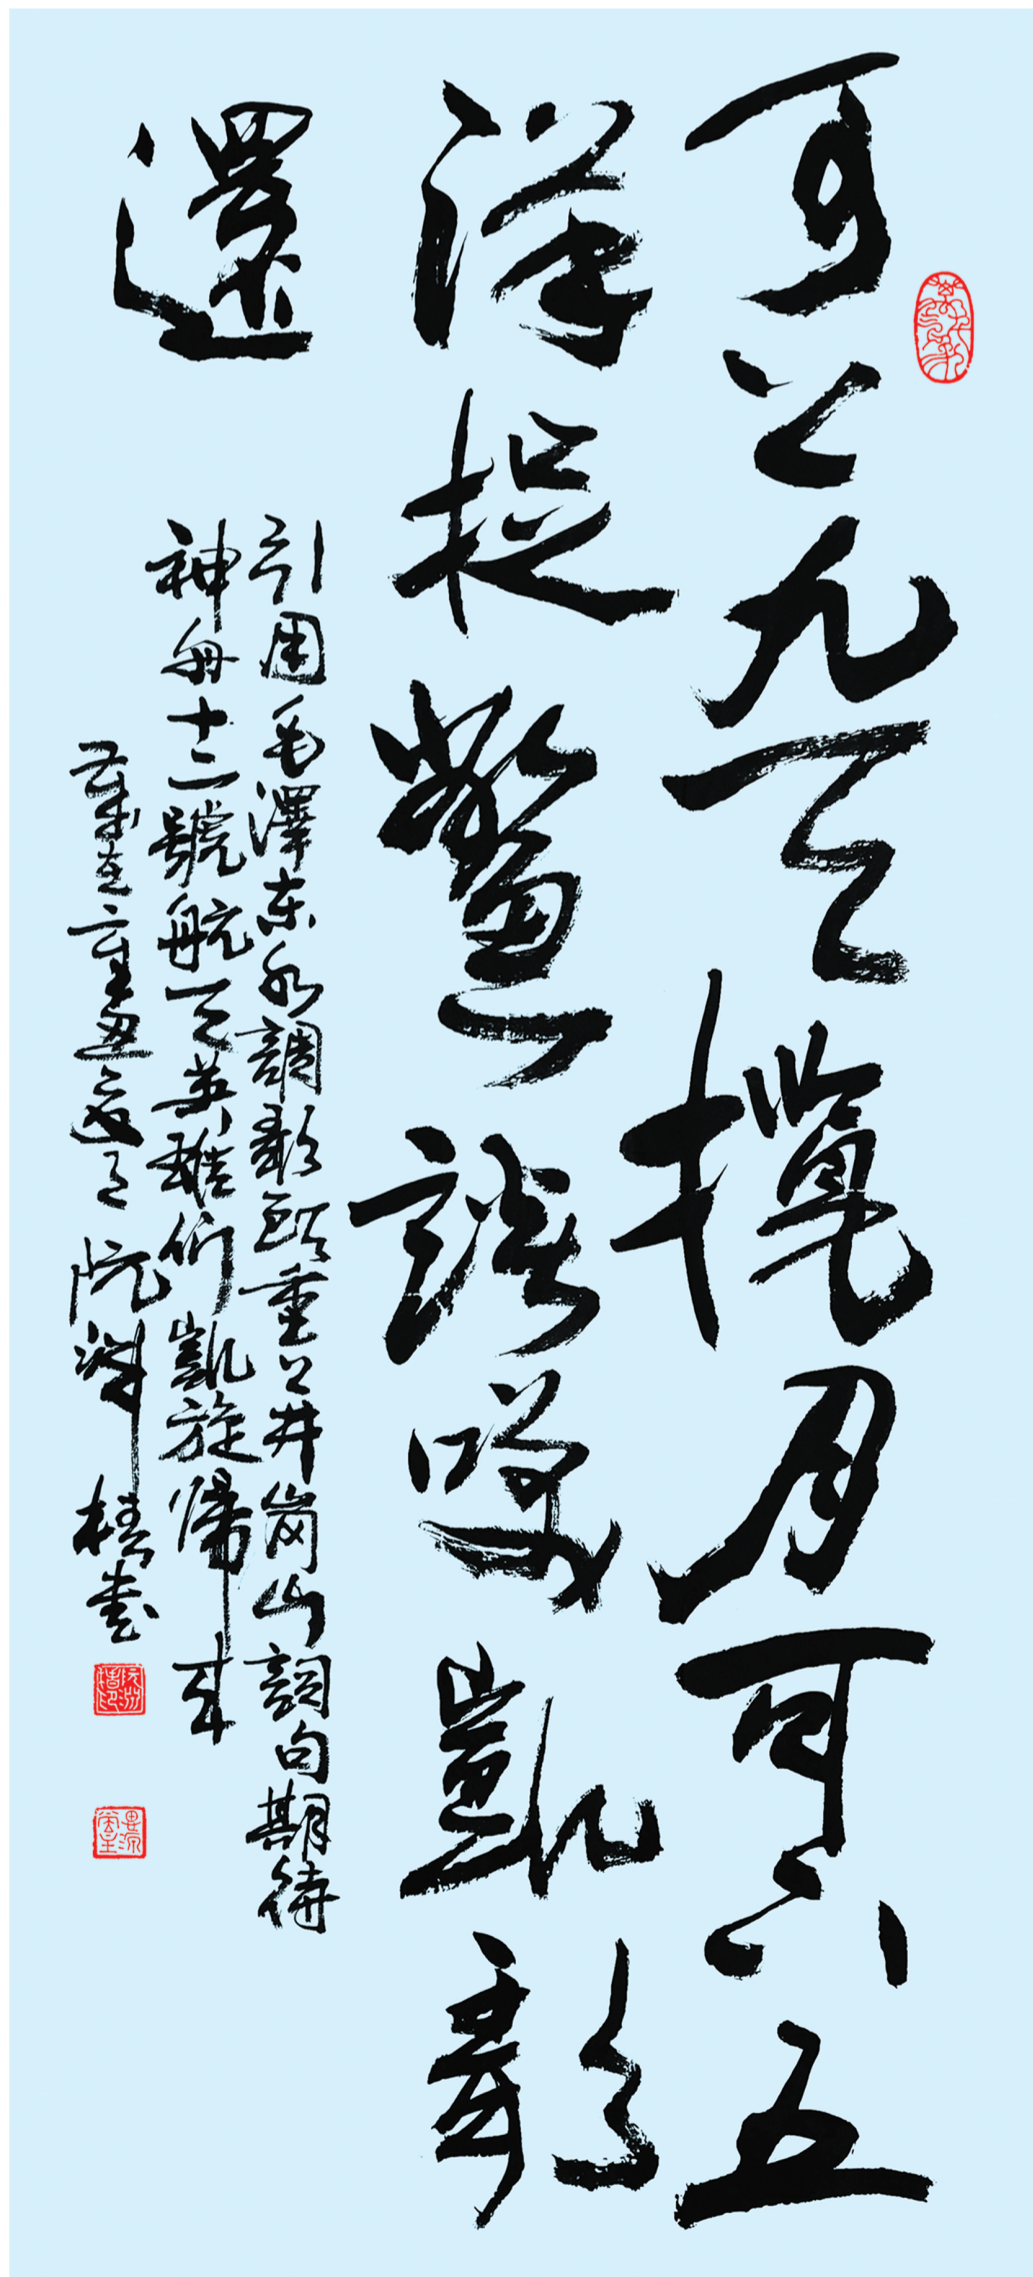 可上九天攬月可下五
洋捉鱉談笑凱歌
還
引用毛澤東水調歌頭重上井崗山詞句期待
神舟十二號航天英雄們凱旋歸來
阮 書